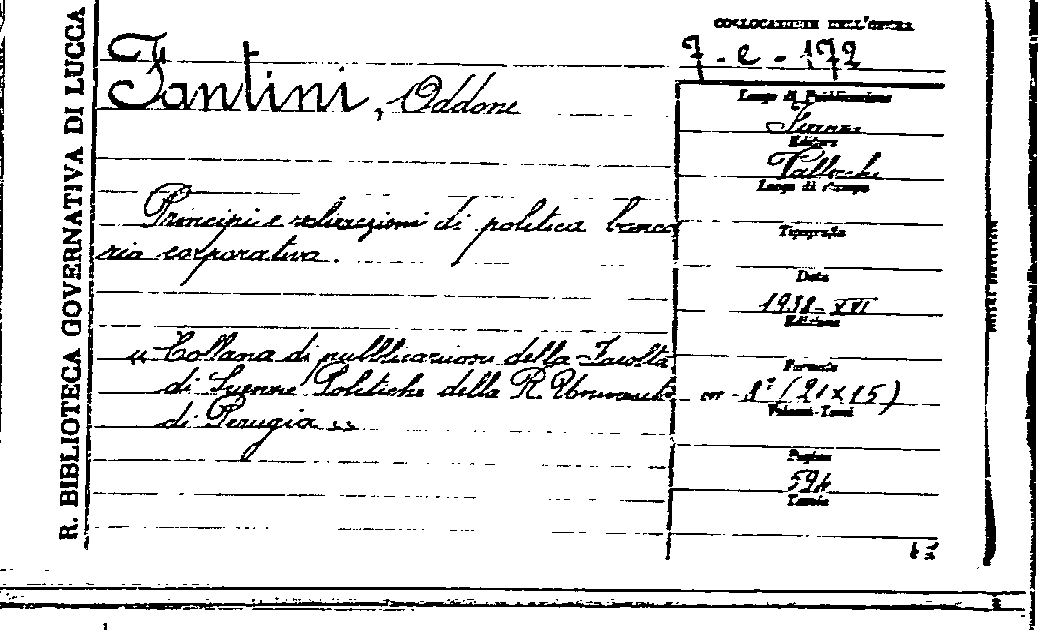 R. BIBLIOTECA GOVERNATIVA DI LUCCA
COLLOCAZIONE DELL'OPERA
7-e-172
Fantini, Oddone
Principi e realizzazioni di politica banca
ria corporativa.
"Collana di pubblicazioni della Facoltà
di Scienze Politiche della R. Università
di Perugia"
Luogo di Pubblicazione
Firenze
Editore
Vallecchi
Luogo di stampa
Tipografia
Data
1938-XVI
Edizione
Formato
8° (21x15)
Volumi-Tomi
Pagine
594
Tavole